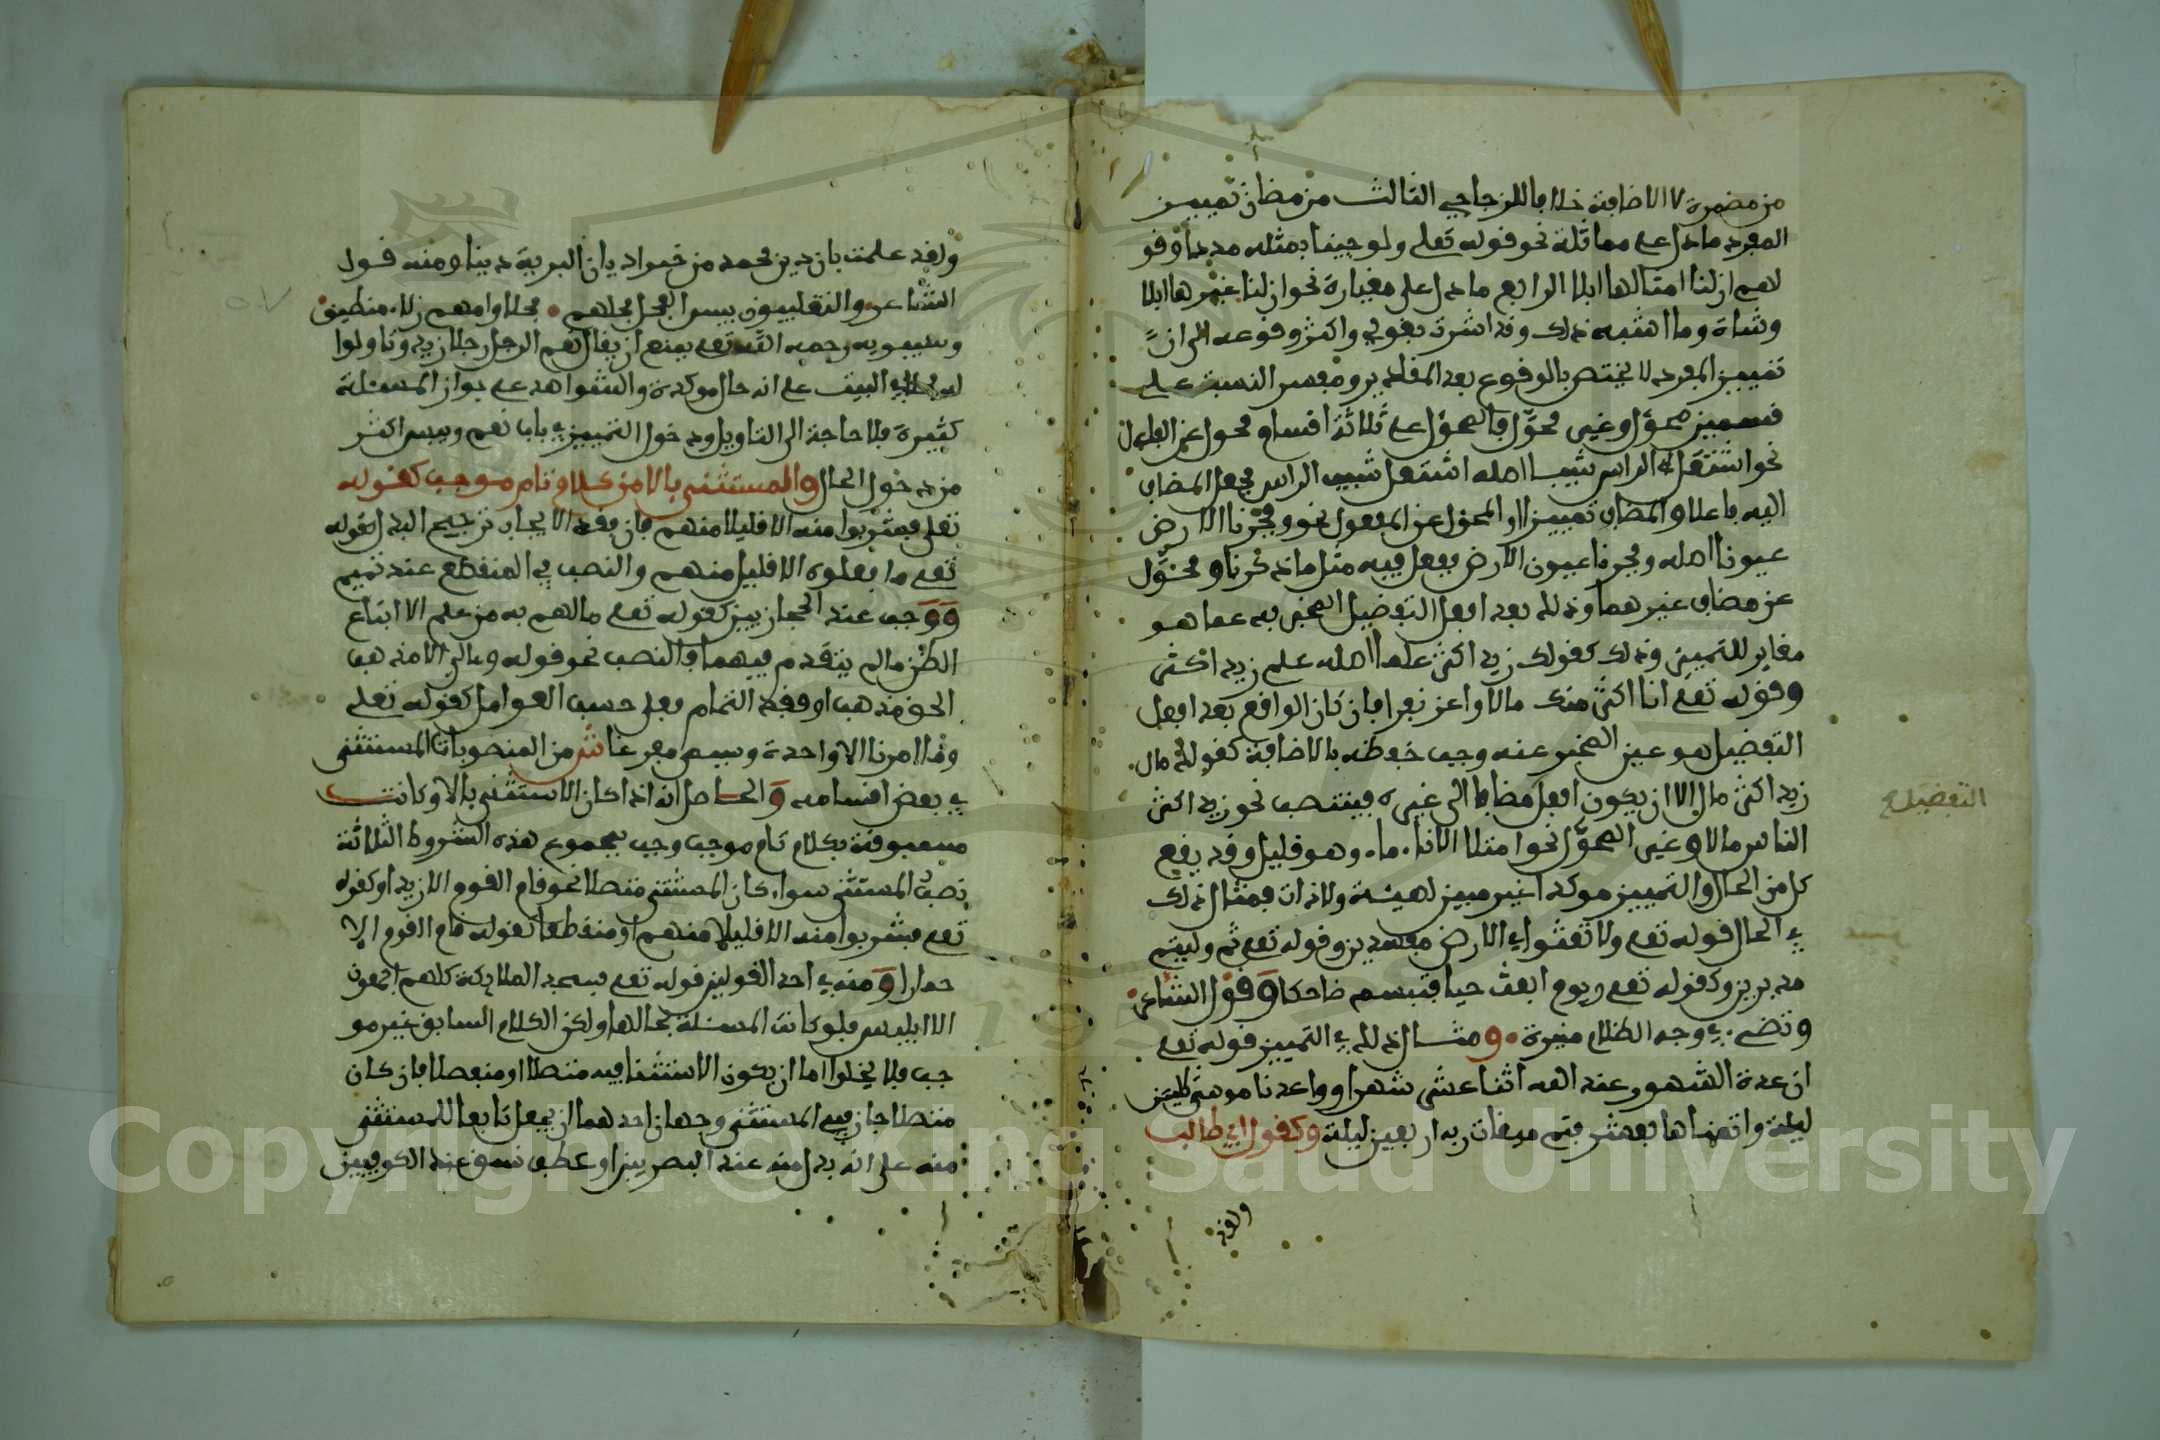 من مضمرة لا الاضافة خلافا للزجاجي الثالث من مظان تمييز
المفرد ما دل على مماثلة نحو قوله تعلى ولو جينا بمثله مددا وقو
لهم ان لنا امثالها ابلا الرابع ما دل على مغيارة نحو ان لنا غيرها ابلا
وشاة وما اشبه ذلك وقد اشرت بقولي واكثر وقوعه الى ان
تمييز المفرد لا يختص بالوقوع بعد المقادير ومفسر النسبة على
قسمين محوّل وغير محوّل فالمحوّل على ثلاثة اقسام محول عن الفاعل
نحو اشتعل الراس شيبا اصله اشتعل شيب الراس فجعل المضاف
اليه فاعلا والمضاف تمييزا او المحول عن المفعول نحو وفجّرنا الارض
عيونا اصله وفجرنا عيون الارض ففعل فيه مثل ما ذكرنا ومحوّل
عن مضاف غيرهما وذلك بعد افعل التفضيل المخبر به عما هو
مغاير للتمييز وذلك كقولك زيد اكثر علما اصله علم زيد اكثر
وقوله تعلى انا اكثر منك مالا واعز نفرا فان كان الواقع بعد افعل
التفضيل هو عين المخبر عنه وجب خفظه بالاضافة كقولك مال
زيد اكثر مال الا ان يكون افعل مضافا الى غيره فينتصب نحو زيد اكثر
الناس مالا وغير المحوّل نحو امتلا الانا ماء وهو قليل وقد يقع
كل من الحال والتمييز موكدا غير مبين لهيئة ولا ذات فمثال ذلك
في الحال قوله تعلى ولا تعثوا في الارض مفسدين وقوله تعلى ثم وليتم
مدبرين وكقوله تعلى ويوم ابعث حيا فتبسم ضاحكا وقول الشاعر
وتضيء في وجه الظلام منيرة ومثال ذلك في التمييز قوله تعلى
ان عدة الشهور عند الله اثنا عشر شهرا وواعدنا موسى ثلثين
ليلة واتممناها بعشر فتم ميقات ربه اربعين ليلة وكقول ابي طالب
ولقد
التفضيل
ولقد علمت بان دين محمد من خير اديان البرية دينا ومنه قول
الشاعر والتغلبيون بيس الفحل فحلهم فحلا وامهم زلاء منطيق
وسيبويه رحمه الله تعلى يمنع ان يقال نعم الرجل رجلا زيد وتاولوا
البيت على انه حال موكدة والشواهد على جواز المسئلة
كثيرة فلا حاجة الى التاويل ودخول التمييز في باب نعم وبيس اكثر
من دخول الحال والمستثنى بالا من كلام تام موجب كقوله
تعلى فشربوا منه الا قليلا منهم فان فقد الايجاب ترجح البدل كقوله
تعلى ما فعلوه الا قليل منهم والنصب في المنقطع عند تميم
ووجب عند الحجازيين كقوله تعلى ما لهم به من علم الا اتباع
الظن ما لم يتقدم فيهما فالنصب نحو قوله ومالي الا مذهب
الحق مذهب او فقد التمام فعلى حسب العوامل كقوله تعلى
وما امرنا الا واحدة ويسمى مفرغا ش من المنصوبات المستثنى
في بعض اقسامه والحاصل انه اذا كان الاستثنى بالا وكانت
مسبوقة بكلام تام موجب وجب بمجموع هذه الشروط الثلاثة
نصب المستثنى سواء كان المستثنى متصلا نحو قام القوم الا زيدا وكقوله
تعلى فشربوا منه الا قليلا منهم او منقطعا كقوله قام القوم الا
حمارا ومنه في احد القولين قوله تعلى فسجد الملايكة كلهم اجمعون
الا ابليس فلو كانت المسئلة بحالها ولكن الكلام السابق غير مو
جب فلا يخلوا اما ان يكون الاستثنا فيه متصلا او منفصلا فان كان
متصلا جاز في المستثنى وجهان احدهما ان يجعل تابعا للمستثنى
منه على انه بدل منه عند البصريين او عطف نسق عند الكوفيين
Copyright © King Saud University